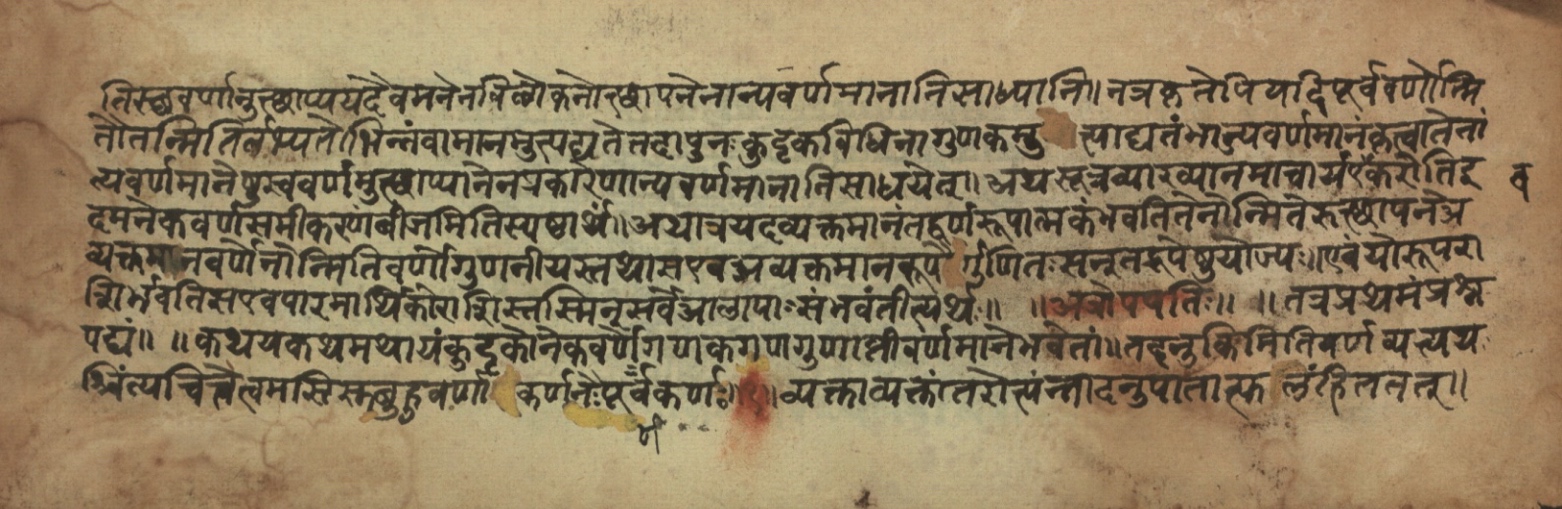 तिस्छवर्णानुत्छाप्ययदैवमनेनविलोकनोत्छापनेनान्यवर्णमानानिसाध्यानि॥नत्रकृतेपियदिपूर्ववर्णोन्मि
तौतन्मितिर्लभ्यतेभिन्नंवामानमुत्पद्यतेतदापुनःकुट्टकविधिनागुणकमुत्पाद्यतंभान्यवर्णमानंकृत्वातेनां
त्यवर्णमानेषुस्ववर्णमुत्छाप्यानेनप्रकारेणान्यवर्णमानानिसाधयेत्॥अथसूत्रव्याख्यानमाचार्यएवकरोतिइ
दमनेकवर्णसमीकरणंबीजमितिस्पष्ठार्थं॥अथात्रयदव्यक्तमानंतद्वर्णरूपात्मकंभवतितेनोन्मितेरुत्छापनेअ
व्यक्तमानवर्णेनोन्मितिवर्णोगुणनीयस्तथासएवअव्यक्तमानरूपैर्गुणितःसन्नूतद्रूपेषुयोज्यः॥एवंयोरूपरा
शिर्भवतिसएवपारमार्थिकोराशिस्तस्मिन्सर्वेआलापाःसंभवंतीत्यर्थः॥ ॥अत्रोपपतिः॥ ॥तत्रप्रथमंप्रश्न
पद्यं॥ ॥कथयकथमथायंकुट्टकोनेकवर्णेगणकगणगुणाप्तीवर्णमानेभवेतां॥तदनुकिमितिवर्णव्यत्यय
श्चिंत्यचित्तेत्वमसिसुबहुवर्णाकर्णनेपूर्वकर्णः॥१॥व्यक्ताव्यक्तांतरोत्पंन्नादनुपातात्फलंहितत्तत्॥